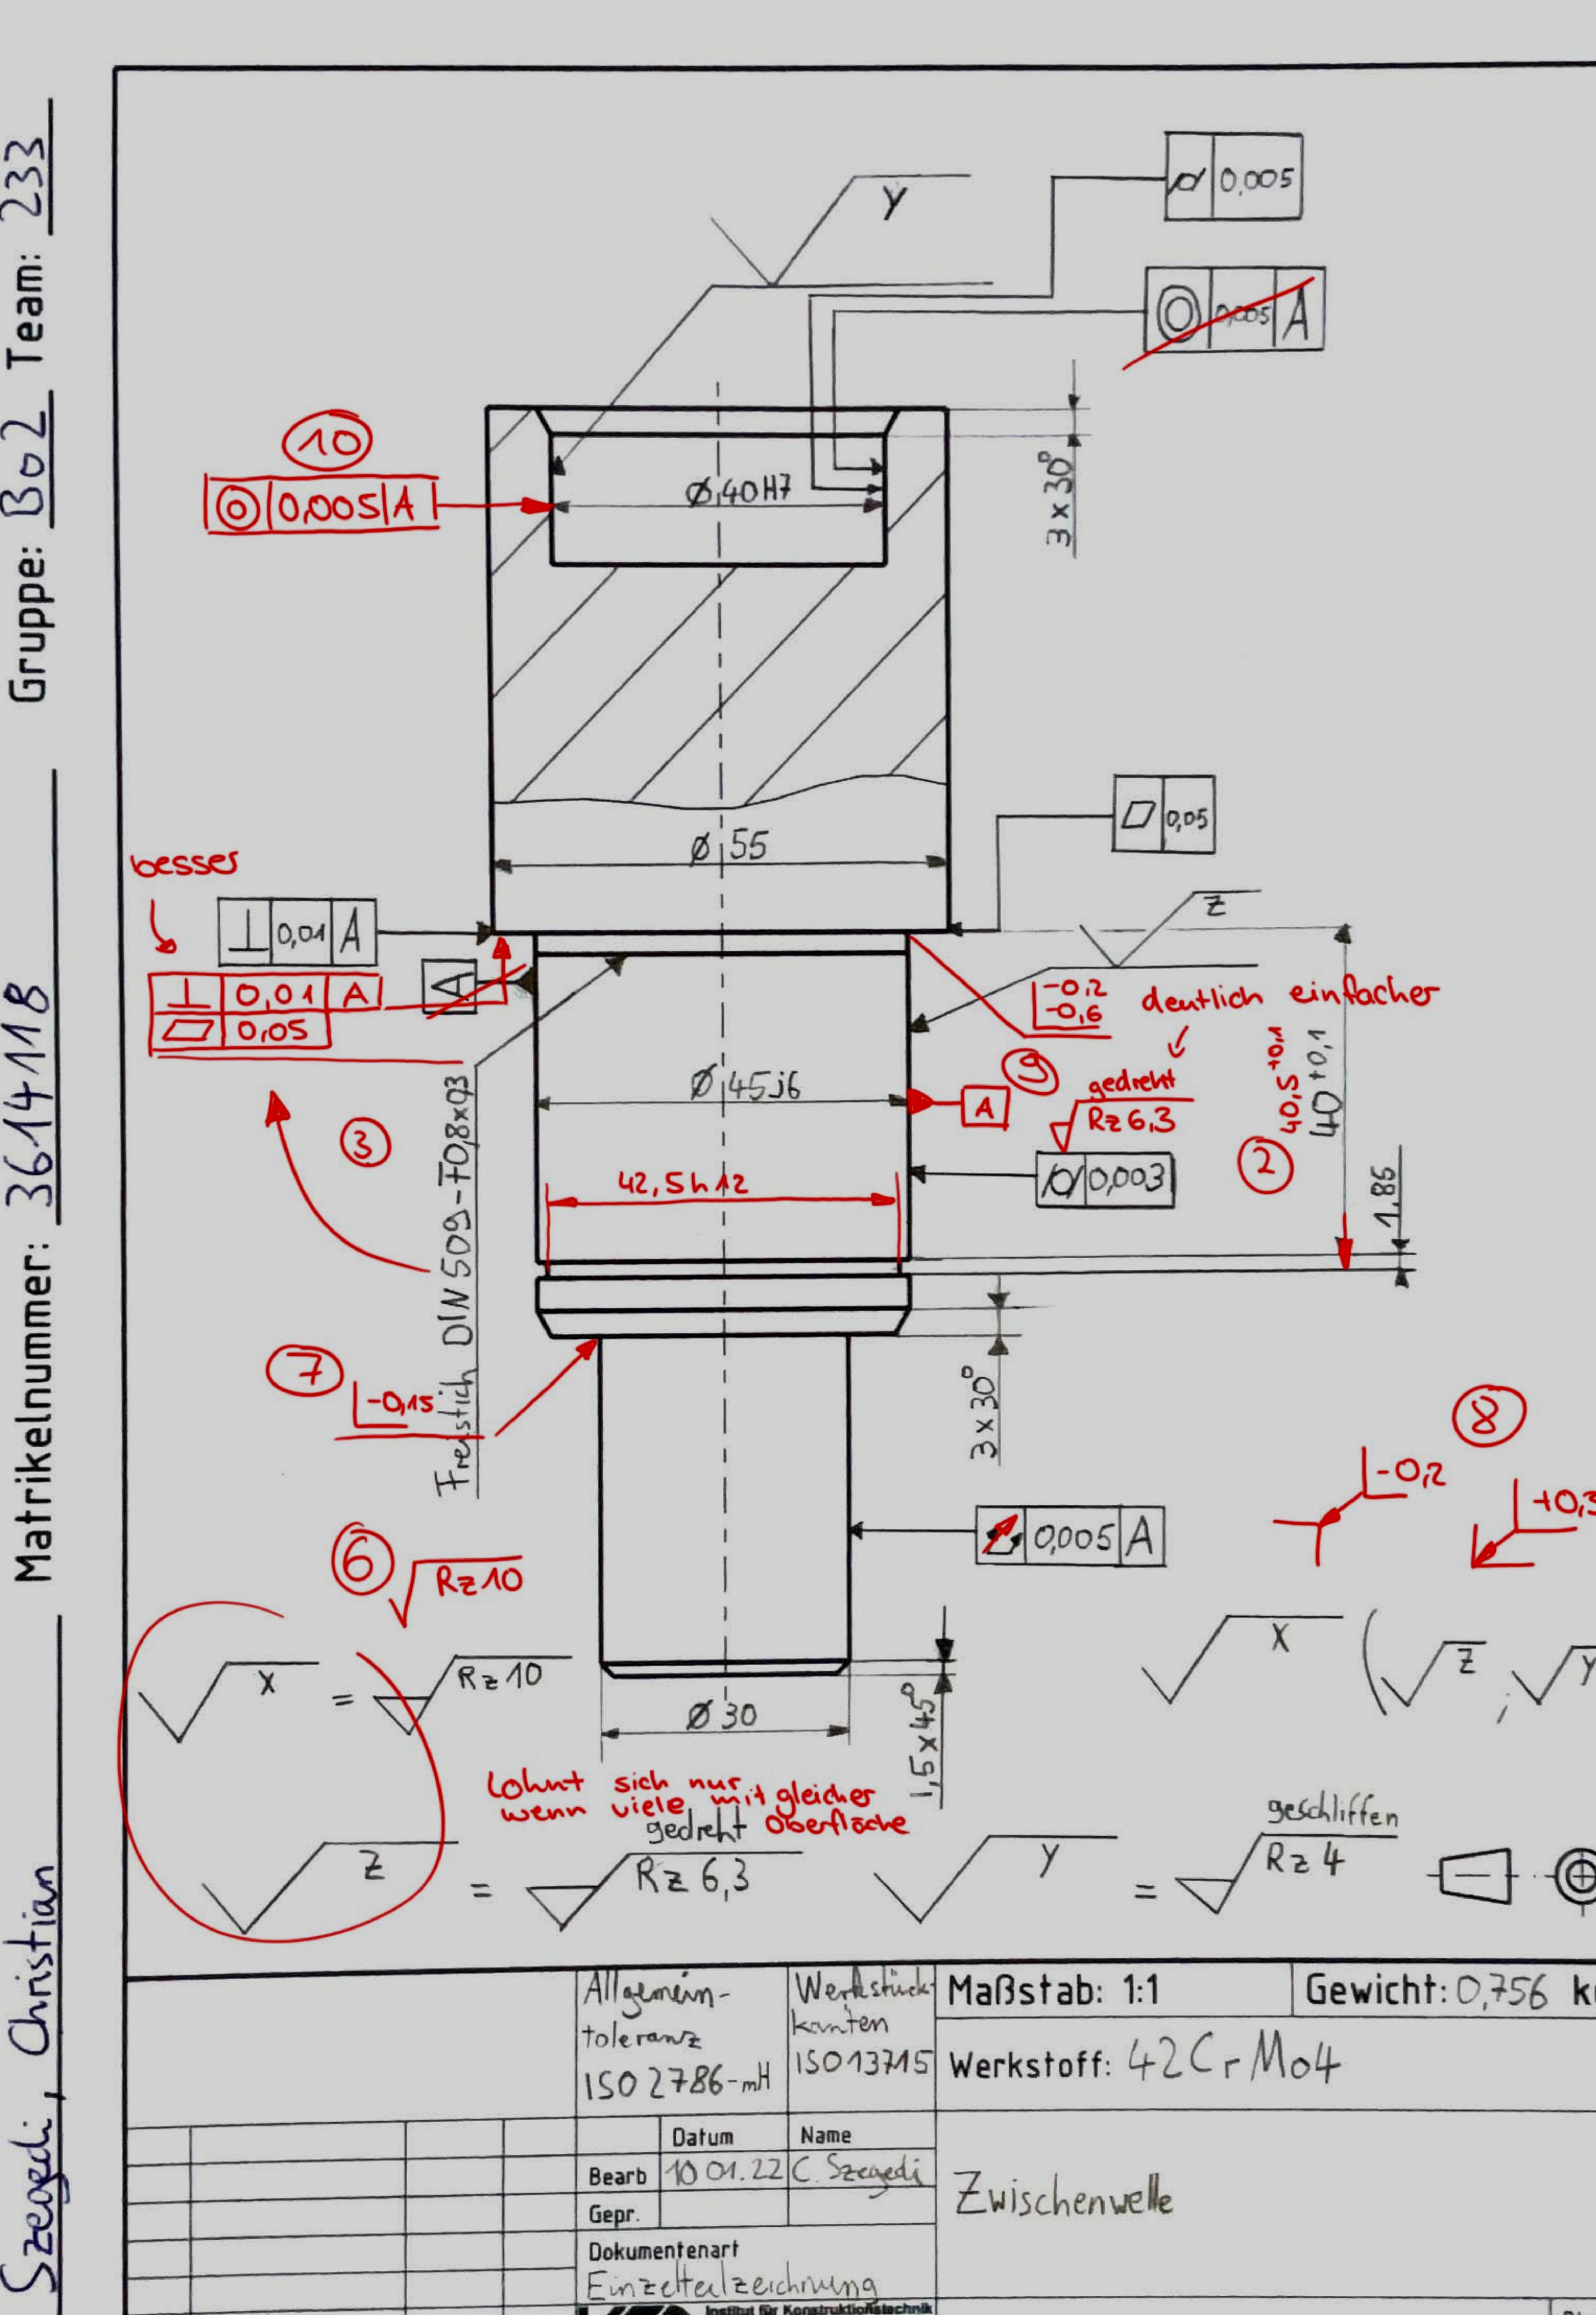 Szegedi, Christian Matrikelnummer: 3614118 Gruppe: Bo2 Team: 233
y
0,005
0,005 A
10
0,005 A
Ø 40 H7
3 x 30°
0,05
Ø 55
besser
0,01 A
z
0,01 A
0,05
A
-0,2
-0,6
deutlich einfacher
9
gedreht
Rz 6,3
Ø 45j6
A
40,5 +0,1
40 +0,1
3
Freistich DIN 509-F0,8x0,3
42,5 h12
0,003
2
1,85
7
-0,15
3 x 30°
8
-0,2
+0,3
6
Rz 10
0,005 A
x = Rz 10
x ( z ; y
Ø 30
1,5 x 45°
Lohnt sich nur
wenn viele mit gleicher
Oberfläche
gedreht
z = Rz 6,3
geschliffen
y = Rz 4
Allgemein-
toleranz
ISO 2786-mH
Werkstück
kanten
ISO 13715
Maßstab: 1:1
Gewicht: 0,756 k
Werkstoff: 42CrMo4
Datum Name
Bearb 10 01.22 C. Szegedi
Gepr.
Zwischenwelle
Dokumentenart
Einzelteilzeichnung
Institut für Konstruktionstechnik